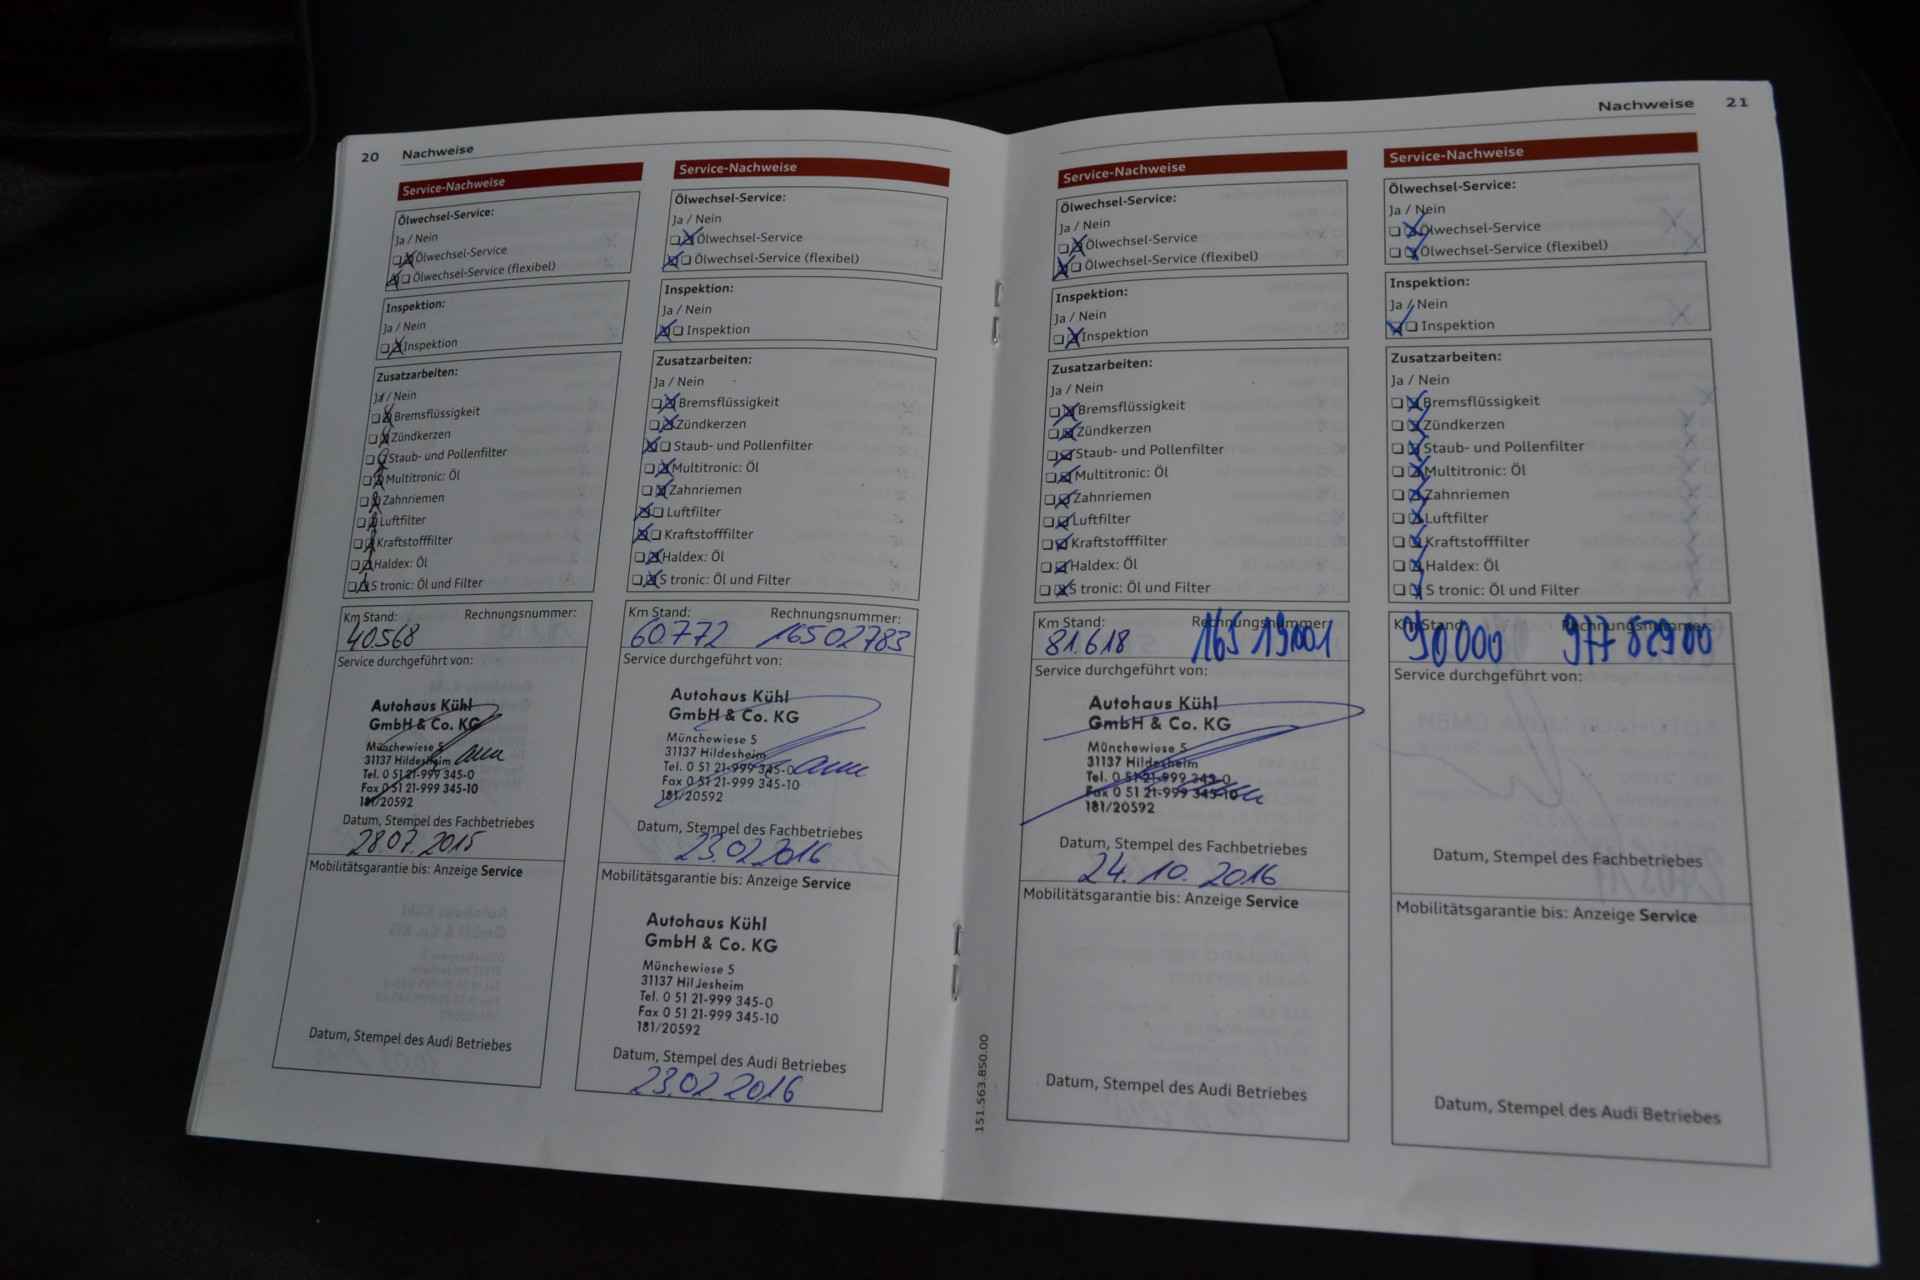 20 Nachweise
Service-Nachweise
Ölwechsel-Service:
Ja / Nein
Ölwechsel-Service
Ölwechsel-Service (flexibel)
Inspektion:
Ja / Nein
Inspektion
Zusatzarbeiten:
Ja / Nein
Bremsflüssigkeit
Zündkerzen
Staub- und Pollenfilter
Multitronic: Öl
Zahnriemen
Luftfilter
Kraftstofffilter
Haldex: Öl
S tronic: Öl und Filter
Km Stand: Rechnungsnummer:
40568
Service durchgeführt von:
Autohaus Kühl
GmbH & Co. KG
Münchewiese 5
31137 Hildesheim
Tel. 0 51 21-999 345-0
Fax 0 51 21-999 345-10
181/20592
Datum, Stempel des Fachbetriebes
28.07.2015
Mobilitätsgarantie bis: Anzeige Service
Datum, Stempel des Audi Betriebes
Service-Nachweise
Ölwechsel-Service:
Ja / Nein
Ölwechsel-Service
Ölwechsel-Service (flexibel)
Inspektion:
Ja / Nein
Inspektion
Zusatzarbeiten:
Ja / Nein
Bremsflüssigkeit
Zündkerzen
Staub- und Pollenfilter
Multitronic: Öl
Zahnriemen
Luftfilter
Kraftstofffilter
Haldex: Öl
S tronic: Öl und Filter
Km Stand: Rechnungsnummer:
60772 16502783
Service durchgeführt von:
Autohaus Kühl
GmbH & Co. KG
Münchewiese 5
31137 Hildesheim
Tel. 0 51 21-999 345-0
Fax 0 51 21-999 345-10
181/20592
Datum, Stempel des Fachbetriebes
23.02.2016
Mobilitätsgarantie bis: Anzeige Service
Autohaus Kühl
GmbH & Co. KG
Münchewiese 5
31137 Hildesheim
Tel. 0 51 21-999 345-0
Fax 0 51 21-999 345-10
181/20592
Datum, Stempel des Audi Betriebes
23.02.2016
151.563.850.00
Nachweise 21
Service-Nachweise
Ölwechsel-Service:
Ja / Nein
Ölwechsel-Service
Ölwechsel-Service (flexibel)
Inspektion:
Ja / Nein
Inspektion
Zusatzarbeiten:
Ja / Nein
Bremsflüssigkeit
Zündkerzen
Staub- und Pollenfilter
Multitronic: Öl
Zahnriemen
Luftfilter
Kraftstofffilter
Haldex: Öl
S tronic: Öl und Filter
Km Stand: Rechnungsnummer:
81.618 165 19001
Service durchgeführt von:
Autohaus Kühl
GmbH & Co. KG
Münchewiese 5
31137 Hildesheim
Tel. 0 51 21-999 345-0
Fax 0 51 21-999 345-10
181/20592
Datum, Stempel des Fachbetriebes
24.10.2016
Mobilitätsgarantie bis: Anzeige Service
Datum, Stempel des Audi Betriebes
Service-Nachweise
Ölwechsel-Service:
Ja / Nein
Ölwechsel-Service
Ölwechsel-Service (flexibel)
Inspektion:
Ja / Nein
Inspektion
Zusatzarbeiten:
Ja / Nein
Bremsflüssigkeit
Zündkerzen
Staub- und Pollenfilter
Multitronic: Öl
Zahnriemen
Luftfilter
Kraftstofffilter
Haldex: Öl
S tronic: Öl und Filter
Km Stand: Rechnungsnummer:
90000 977 82900
Service durchgeführt von:
Datum, Stempel des Fachbetriebes
Mobilitätsgarantie bis: Anzeige Service
Datum, Stempel des Audi Betriebes